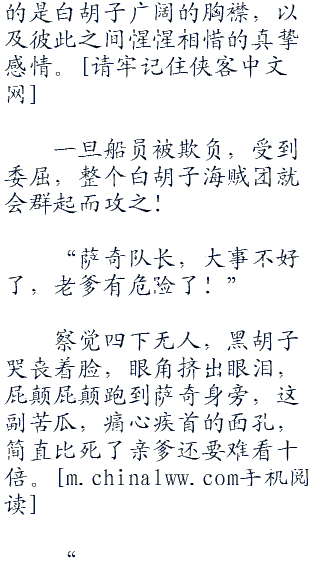 的是白胡子广阔的胸襟，以
及彼此之间惺惺相惜的真挚
感情。[请牢记住侠客中文
网]
一旦船员被欺负，受到
委屈，整个白胡子海贼团就
会群起而攻之！
“萨奇队长，大事不好
了，老爹有危险了！”
察觉四下无人，黑胡子
哭丧着脸，眼角挤出眼泪，
屁颠屁颠跑到萨奇身旁，这
副苦瓜，痛心疾首的面孔，
简直比死了亲爹还要难看十
倍。[m.china1ww.com手机阅
读]
“